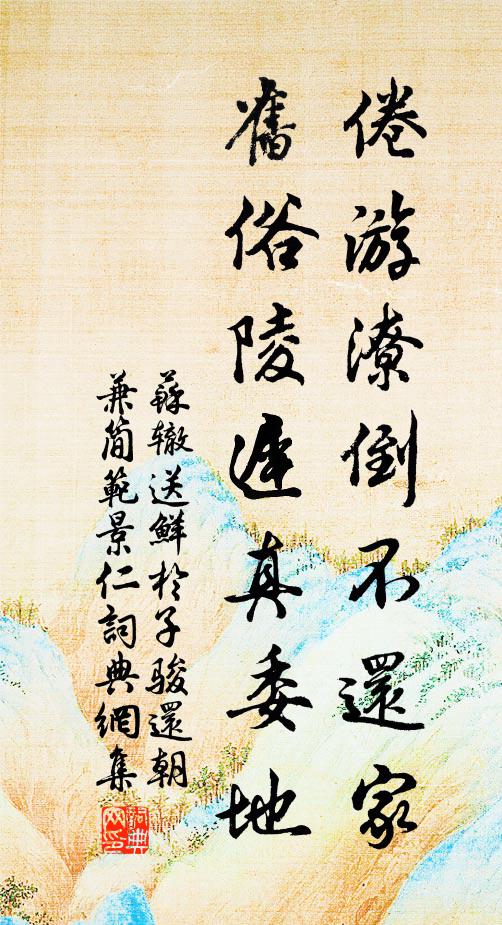 倦游潦倒不還家
舊俗陵遲真委地
蘇辙送鮮於子骏還朝
兼简範景仁詞典網集
詞典
网印